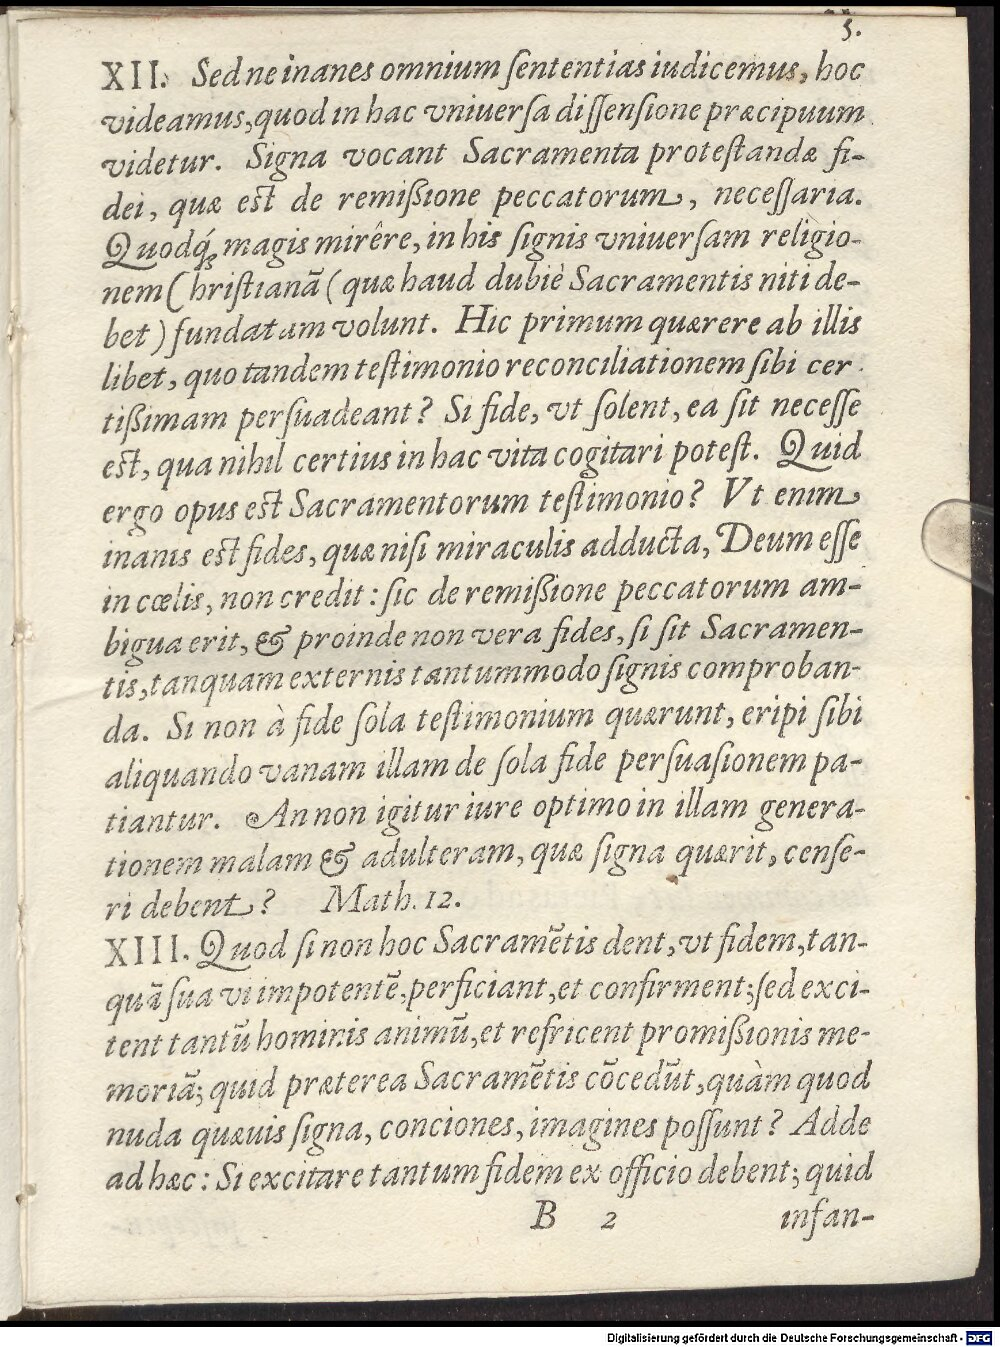 5.
XII. Sed ne inanes omnium ſententias iudicemus, hoc
videamus, quod in hac vniuerſa diſſenſione præcipuum
videtur. Signa vocant Sacramenta proteſtandæ fi-
dei, quæ eſt de remißione peccatorum, neceſſaria.
Quodq́; magis mirêre, in his ſignis vniuerſam religio-
nem Chriſtianã (quæ haud dubiè Sacramentis niti de-
bet) fundatam volunt. Hic primum quærere ab illis
libet, quo tandem teſtimonio reconciliationem ſibi cer-
tißimam perſuadeant? Si fide, vt ſolent, ea ſit neceſſe
eſt, qua nihil certius in hac vita cogitari poteſt. Quid
ergo opus eſt Sacramentorum teſtimonio? Vt enim
inanis eſt fides, quæ niſi miraculis adducta, Deum eſſe
in cœlis, non credit: ſic de remißione peccatorum am-
bigua erit, & proinde non vera fides, ſi ſit Sacramen-
tis, tanquam externis tantummodo ſignis comproban-
da. Si non à fide ſola teſtimonium quærunt, eripi ſibi
aliquando vanam illam de ſola fide perſuaſionem pa-
tiantur. An non igitur iure optimo in illam genera-
tionem malam & adulteram, quæ ſigna quærit, cenſe-
ri debent? Math. 12.
XIII. Quod ſi non hoc Sacramẽtis dent, vt fidem, tan-
quã ſua vi impotentẽ, perficiant, et confirment; ſed exci-
tent tantũ hominis animũ, et refricent promißionis me-
moriã; quid præterea Sacramẽtis cõcedũt, quàm quod
nuda quæuis ſigna, conciones, imagines poſſunt? Adde
ad hæc: Si excitare tantum fidem ex officio debent; quid
B 2 infan-
Digitalisierung gefördert durch die Deutsche Forschungsgemeinschaft - DFG